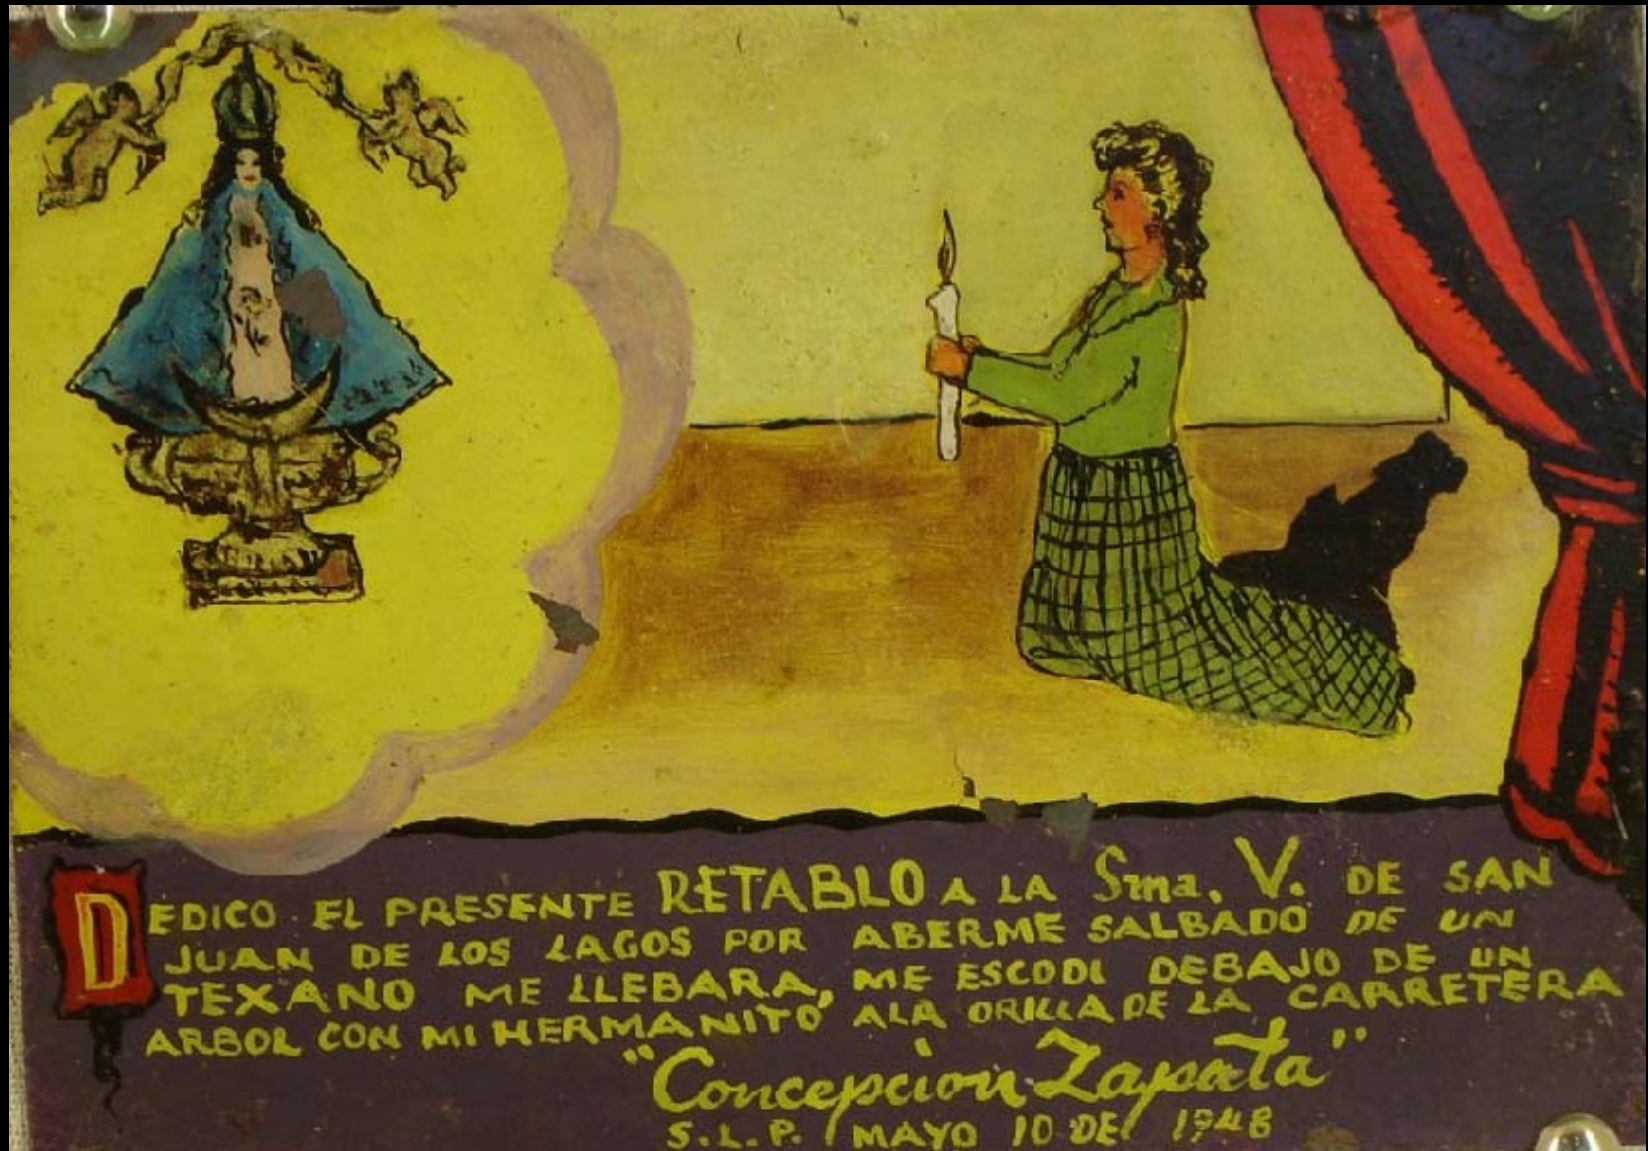 DEDICO EL PRESENTE RETABLO A LA Sma. V. DE SAN
JUAN DE LOS LAGOS POR ABERME SALBADO DE UN
TEXANO ME LLEBARA, ME ESCODI DEBAJO DE UN
ARBOL CON MI HERMANITO ALA ORILLA DE LA CARRETERA
"Concepcion Zapata"
S.L.P. MAYO 10 DE 1948